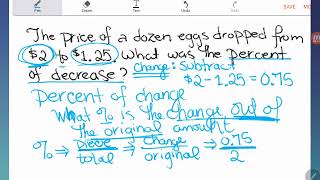 The price of a dozen eggs dropped from
$2 to $1.25. What was the percent
of decrease? Change: Subtract
$2 - 1.25 = 0.75
Percent of change
What % is the change out of
the original amount
% ⇒ piece/total ⇒ change/original ⇒ 0.75/2